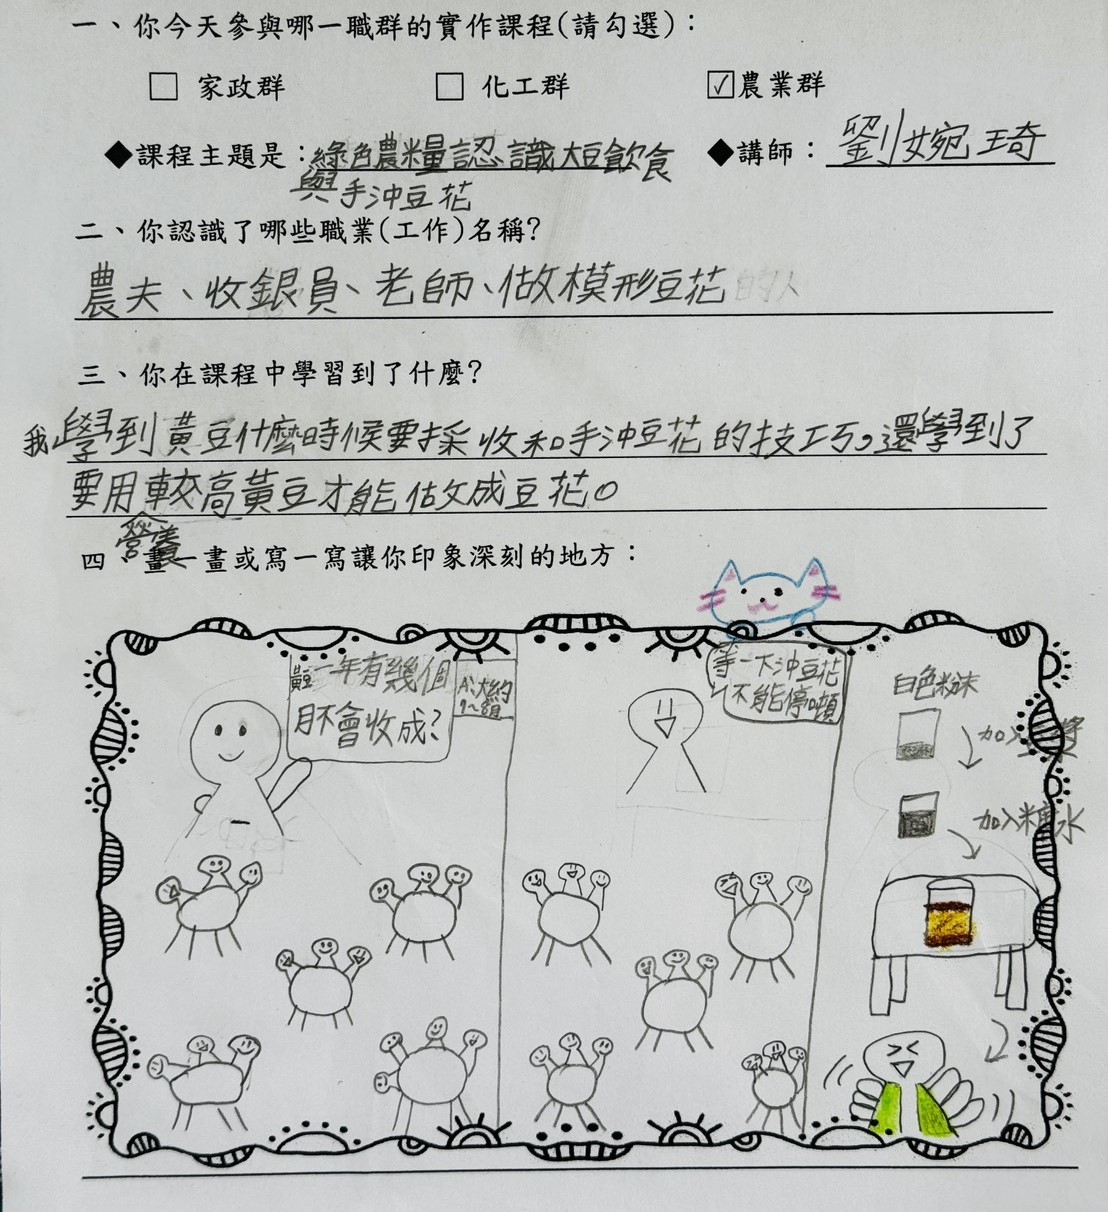 一、你今天參與哪一職群的實作課程(請勾選)：
□ 家政群 □ 化工群 ☑農業群
◆課程主題是：綠色農糧認識大豆飲食 ◆講師：劉婉琦
與手沖豆花
二、你認識了哪些職業(工作)名稱?
農夫、收銀員、老師、做模形豆花的人
三、你在課程中學習到了什麼?
我學到黃豆什麼時候要採收和手沖豆花的技巧。還學到了
要用較高黃豆才能做成豆花。
營養
四、畫一畫或寫一寫讓你印象深刻的地方：
黃豆一年有幾個
月不會收成?
大約
等一下沖豆花
不能停頓
白色粉末
加入豆漿
加入糖水